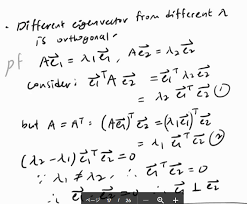 · Different eigenvector from different λ
is orthogonal.
pf Ae⃗₁ = λ₁e⃗₁, Ae⃗₂ = λ₂e⃗₂
Consider: e⃗₁ᵀA e⃗₂ = e⃗₁ᵀλ₂e⃗₂
= λ₂ e⃗₁ᵀe⃗₂ ①
but A = Aᵀ = (Ae⃗₁)ᵀe⃗₂ = (λ₁e⃗₁)ᵀe⃗₂
= λ₁ e⃗₁ᵀe⃗₂ ②
(λ₂-λ₁)e⃗₁ᵀe⃗₂ = 0
∵ λ₁ ≠ λ₂ ∴ e⃗₁ᵀe⃗₂ = 0